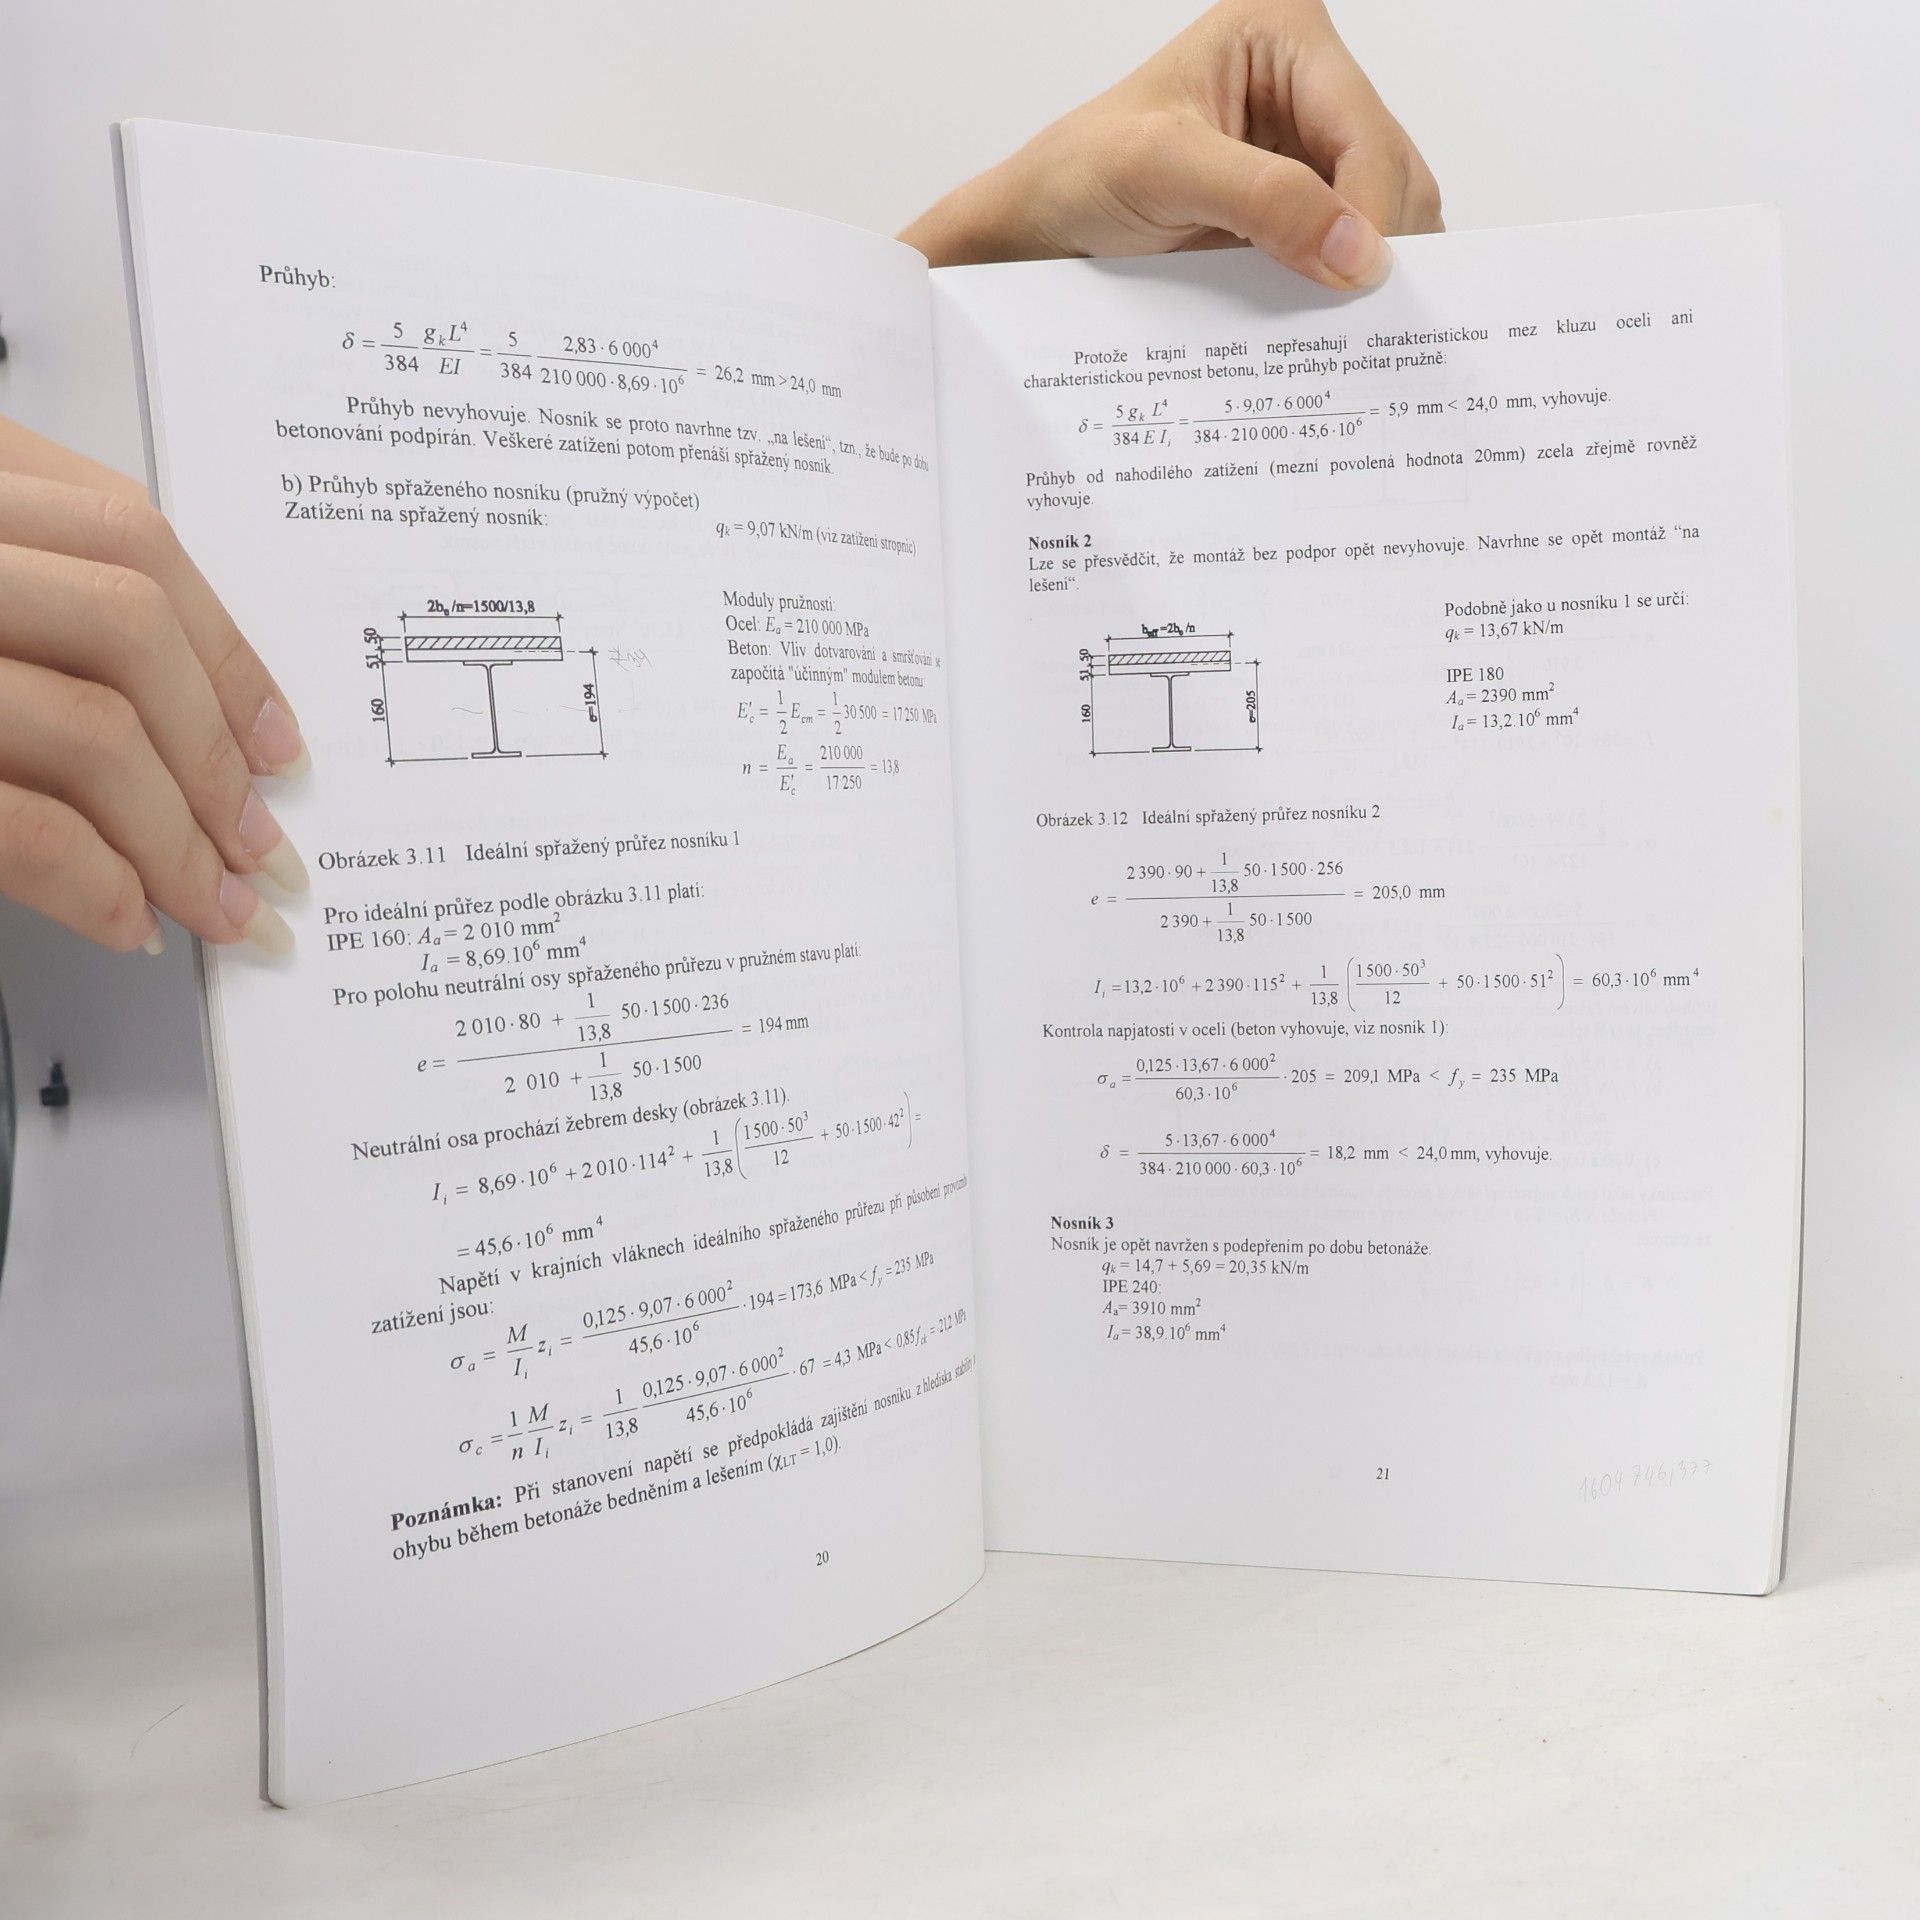 Průhyb:
δ = 5/384 g_k L⁴/EI = 5/384 2,83·6 000⁴/210 000·8,69·10⁶ = 26,2 mm > 24,0 mm
Průhyb nevyhovuje. Nosník se proto navrhne tzv. „na lešení“, tzn., že bude po dobu
betonování podpírán. Veškeré zatížení potom přenáší spřažený nosník.
b) Průhyb spřaženého nosníku (pružný výpočet)
Zatížení na spřažený nosník:
qk = 9,07 kN/m (viz zatížení stropnic)
2be /n=1500/13,8
50
51
160
e=194
Moduly pružnosti:
Ocel: Ea = 210 000 MPa
Beton: Vliv dotvarování a smršťování se
započítá "účinným" modulem betonu:
E'c = 1/2 Ecm = 1/2 30 500 = 17 250 MPa
n = Ea/E'c = 210 000/17 250 = 13,8
Obrázek 3.11 Ideální spřažený průřez nosníku 1
Pro ideální průřez podle obrázku 3.11 platí:
IPE 160: Aa = 2 010 mm²
Ia = 8,69.10⁶ mm⁴
Pro polohu neutrální osy spřaženého průřezu v pružném stavu platí:
e = (2 010·80 + 1/13,8 50·1 500·236)/(2 010 + 1/13,8 50·1 500) = 194 mm
Neutrální osa prochází žebrem desky (obrázek 3.11).
Ii = 8,69·10⁶ + 2 010·114² + 1/13,8 (1 500·50³/12 + 50·1 500·42²) =
= 45,6·10⁶ mm⁴
Napětí v krajních vláknech ideálního spřaženého průřezu při působení provozního
zatížení jsou:
σa = M/Ii zi = 0,125·9,07·6 000²/45,6·10⁶ ·194 = 173,6 MPa < fy = 235 MPa
σc = 1/n M/Ii zi = 1/13,8 0,125·9,07·6 000²/45,6·10⁶ ·67 = 4,3 MPa < 0,85 fck = 21,2 MPa
Poznámka: Při stanovení napětí se předpokládá zajištění nosníku z hlediska stability
ohybu během betonáže bedněním a lešením (χLT = 1,0).
20
Protože krajní napětí nepřesahují charakteristickou mez kluzu oceli ani
charakteristickou pevnost betonu, lze průhyb počítat pružně:
δ = 5 gk L⁴/384 E Ii = 5·9,07·6 000⁴/384·210 000·45,6·10⁶ = 5,9 mm < 24,0 mm, vyhovuje.
Průhyb od nahodilého zatížení (mezní povolená hodnota 20mm) zcela zřejmě rovněž
vyhovuje.
Nosník 2
Lze se přesvědčit, že montáž bez podpor opět nevyhovuje. Navrhne se opět montáž “na
lešení“.
beff=2be /n
50
51
160
e=205
Podobně jako u nosníku 1 se určí:
qk = 13,67 kN/m
IPE 180
Aa = 2390 mm²
Ia = 13,2.10⁶ mm⁴
Obrázek 3.12 Ideální spřažený průřez nosníku 2
e = (2 390·90 + 1/13,8 50·1 500·256)/(2 390 + 1/13,8 50·1 500) = 205,0 mm
Ii = 13,2·10⁶ + 2 390·115² + 1/13,8 (1 500·50³/12 + 50·1 500·51²) = 60,3·10⁶ mm⁴
Kontrola napjatosti v oceli (beton vyhovuje, viz nosník 1):
σa = 0,125·13,67·6 000²/60,3·10⁶ ·205 = 209,1 MPa < fy = 235 MPa
δ = 5·13,67·6 000⁴/384·210 000·60,3·10⁶ = 18,2 mm < 24,0 mm, vyhovuje.
Nosník 3
Nosník je opět navržen s podepřením po dobu betonáže.
qk = 14,7 + 5,69 = 20,35 kN/m
IPE 240:
Aa= 3910 mm²
Ia = 38,9.10⁶ mm⁴
21
1604 746,377